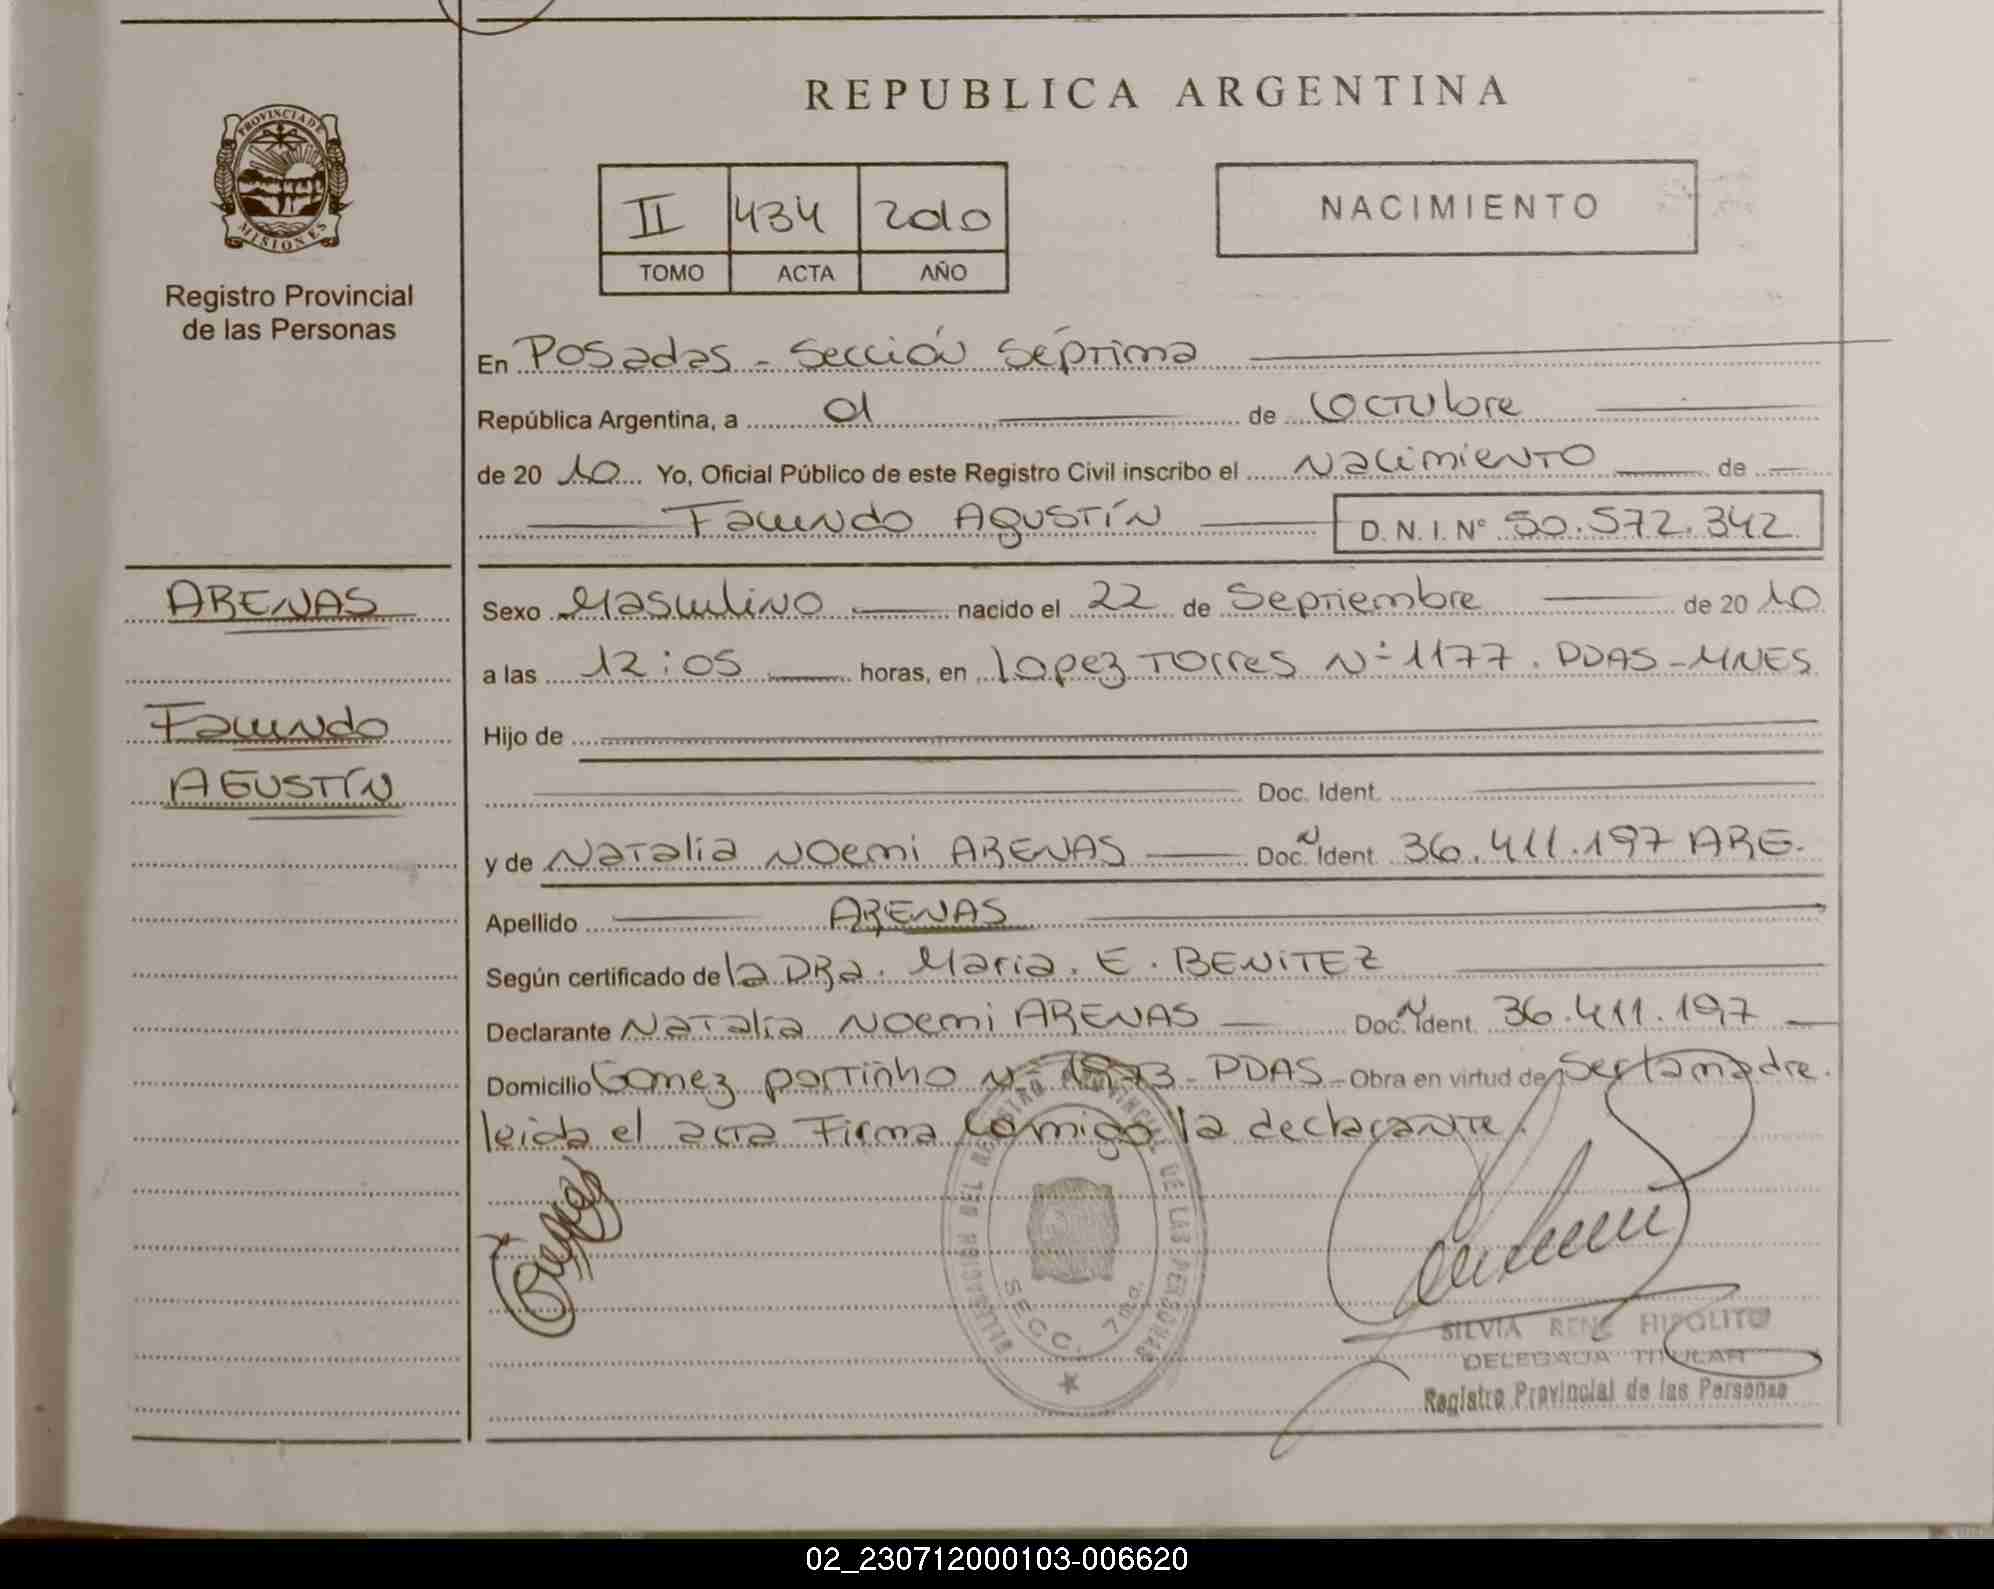 REPUBLICA ARGENTINA
PROVINCIA DE
MISIONES
Registro Provincial
de las Personas
II 434 2010
TOMO ACTA AÑO
NACIMIENTO
En Posadas - Sección Séptima
República Argentina, a 01 de Octubre
de 20 10 Yo, Oficial Público de este Registro Civil inscribo el Nacimiento de
Facundo Agustín D.N.I. Nº 50.572.342
ARENAS
Facundo
AGUSTÍN
Sexo Masculino nacido el 22 de Septiembre de 20 10
a las 12:05 horas, en Lopez Torres Nº 1177. PDAS-MNES
Hijo de
Doc. Ident.
y de Natalia Noemi ARENAS Doc. N Ident. 36.411.197 ARG.
Apellido ARENAS
Según certificado de la DRa. Maria. E. BENITEZ
Declarante Natalia Noemi ARENAS Doc. N Ident. 36.411.197
Domicilio Gomez portinho Nº PDAS - Obra en virtud de Ser la madre.
leida el acta Firma Conmigo la declarante.
DEL REGISTRO PROVINCIAL DE LAS PERSONAS
SECC. 7ma.
SILVIA RENE HIPOLITO
DELEGADA TITULAR
Registro Provincial de las Personas
02_230712000103-006620